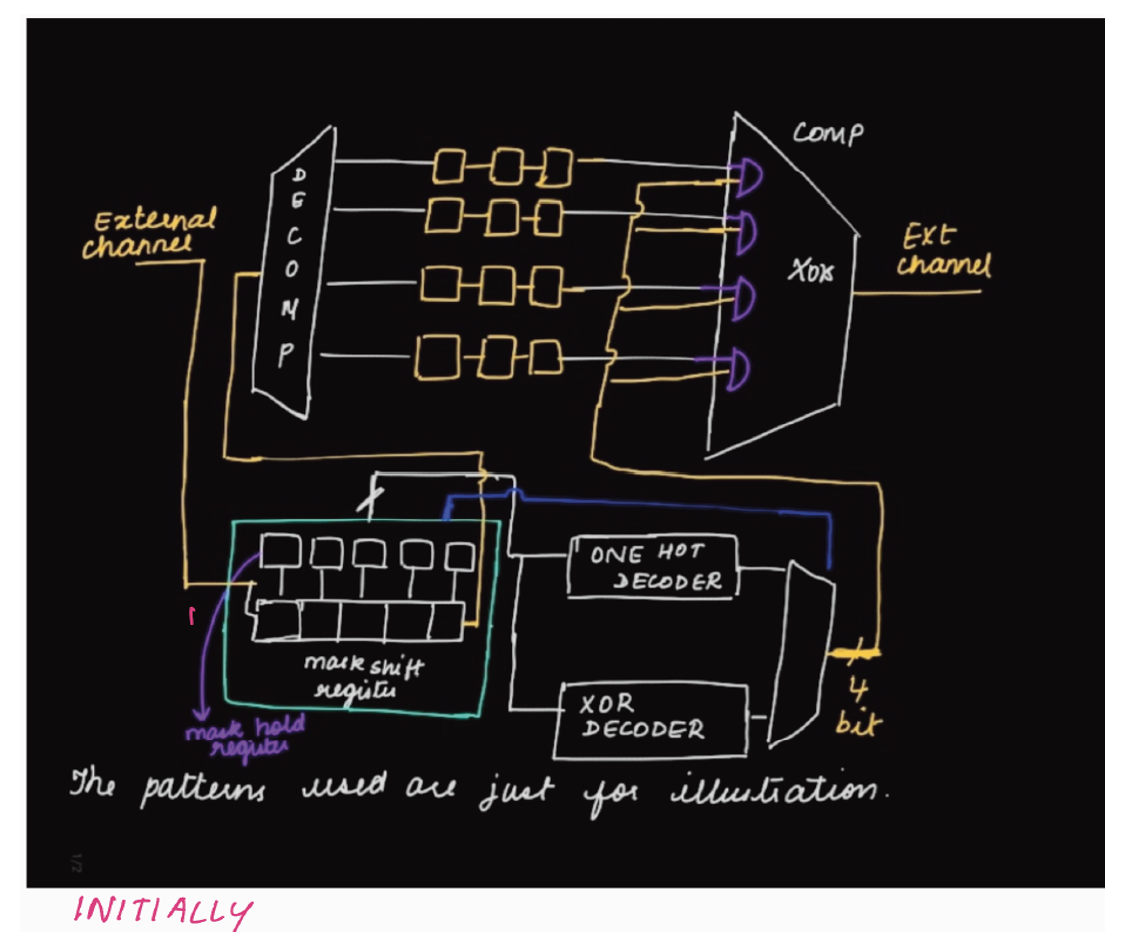 COMP
DECOMP
External
channel
XOR
Ext
channel
ONE HOT
DECODER
1
mask shift
register
XOR
DECODER
4
bit
mask hold
register
The patterns used are just for illustration.
5
INITIALLY